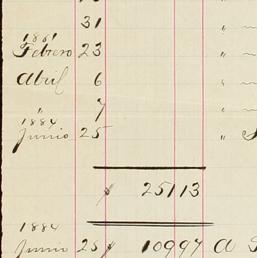 31 "
1881
Febrero 23 "
Abril 6 "
" 7 "
1884
Junio 25 "
$ 25113
1884
Junio 25 $ 10997 A